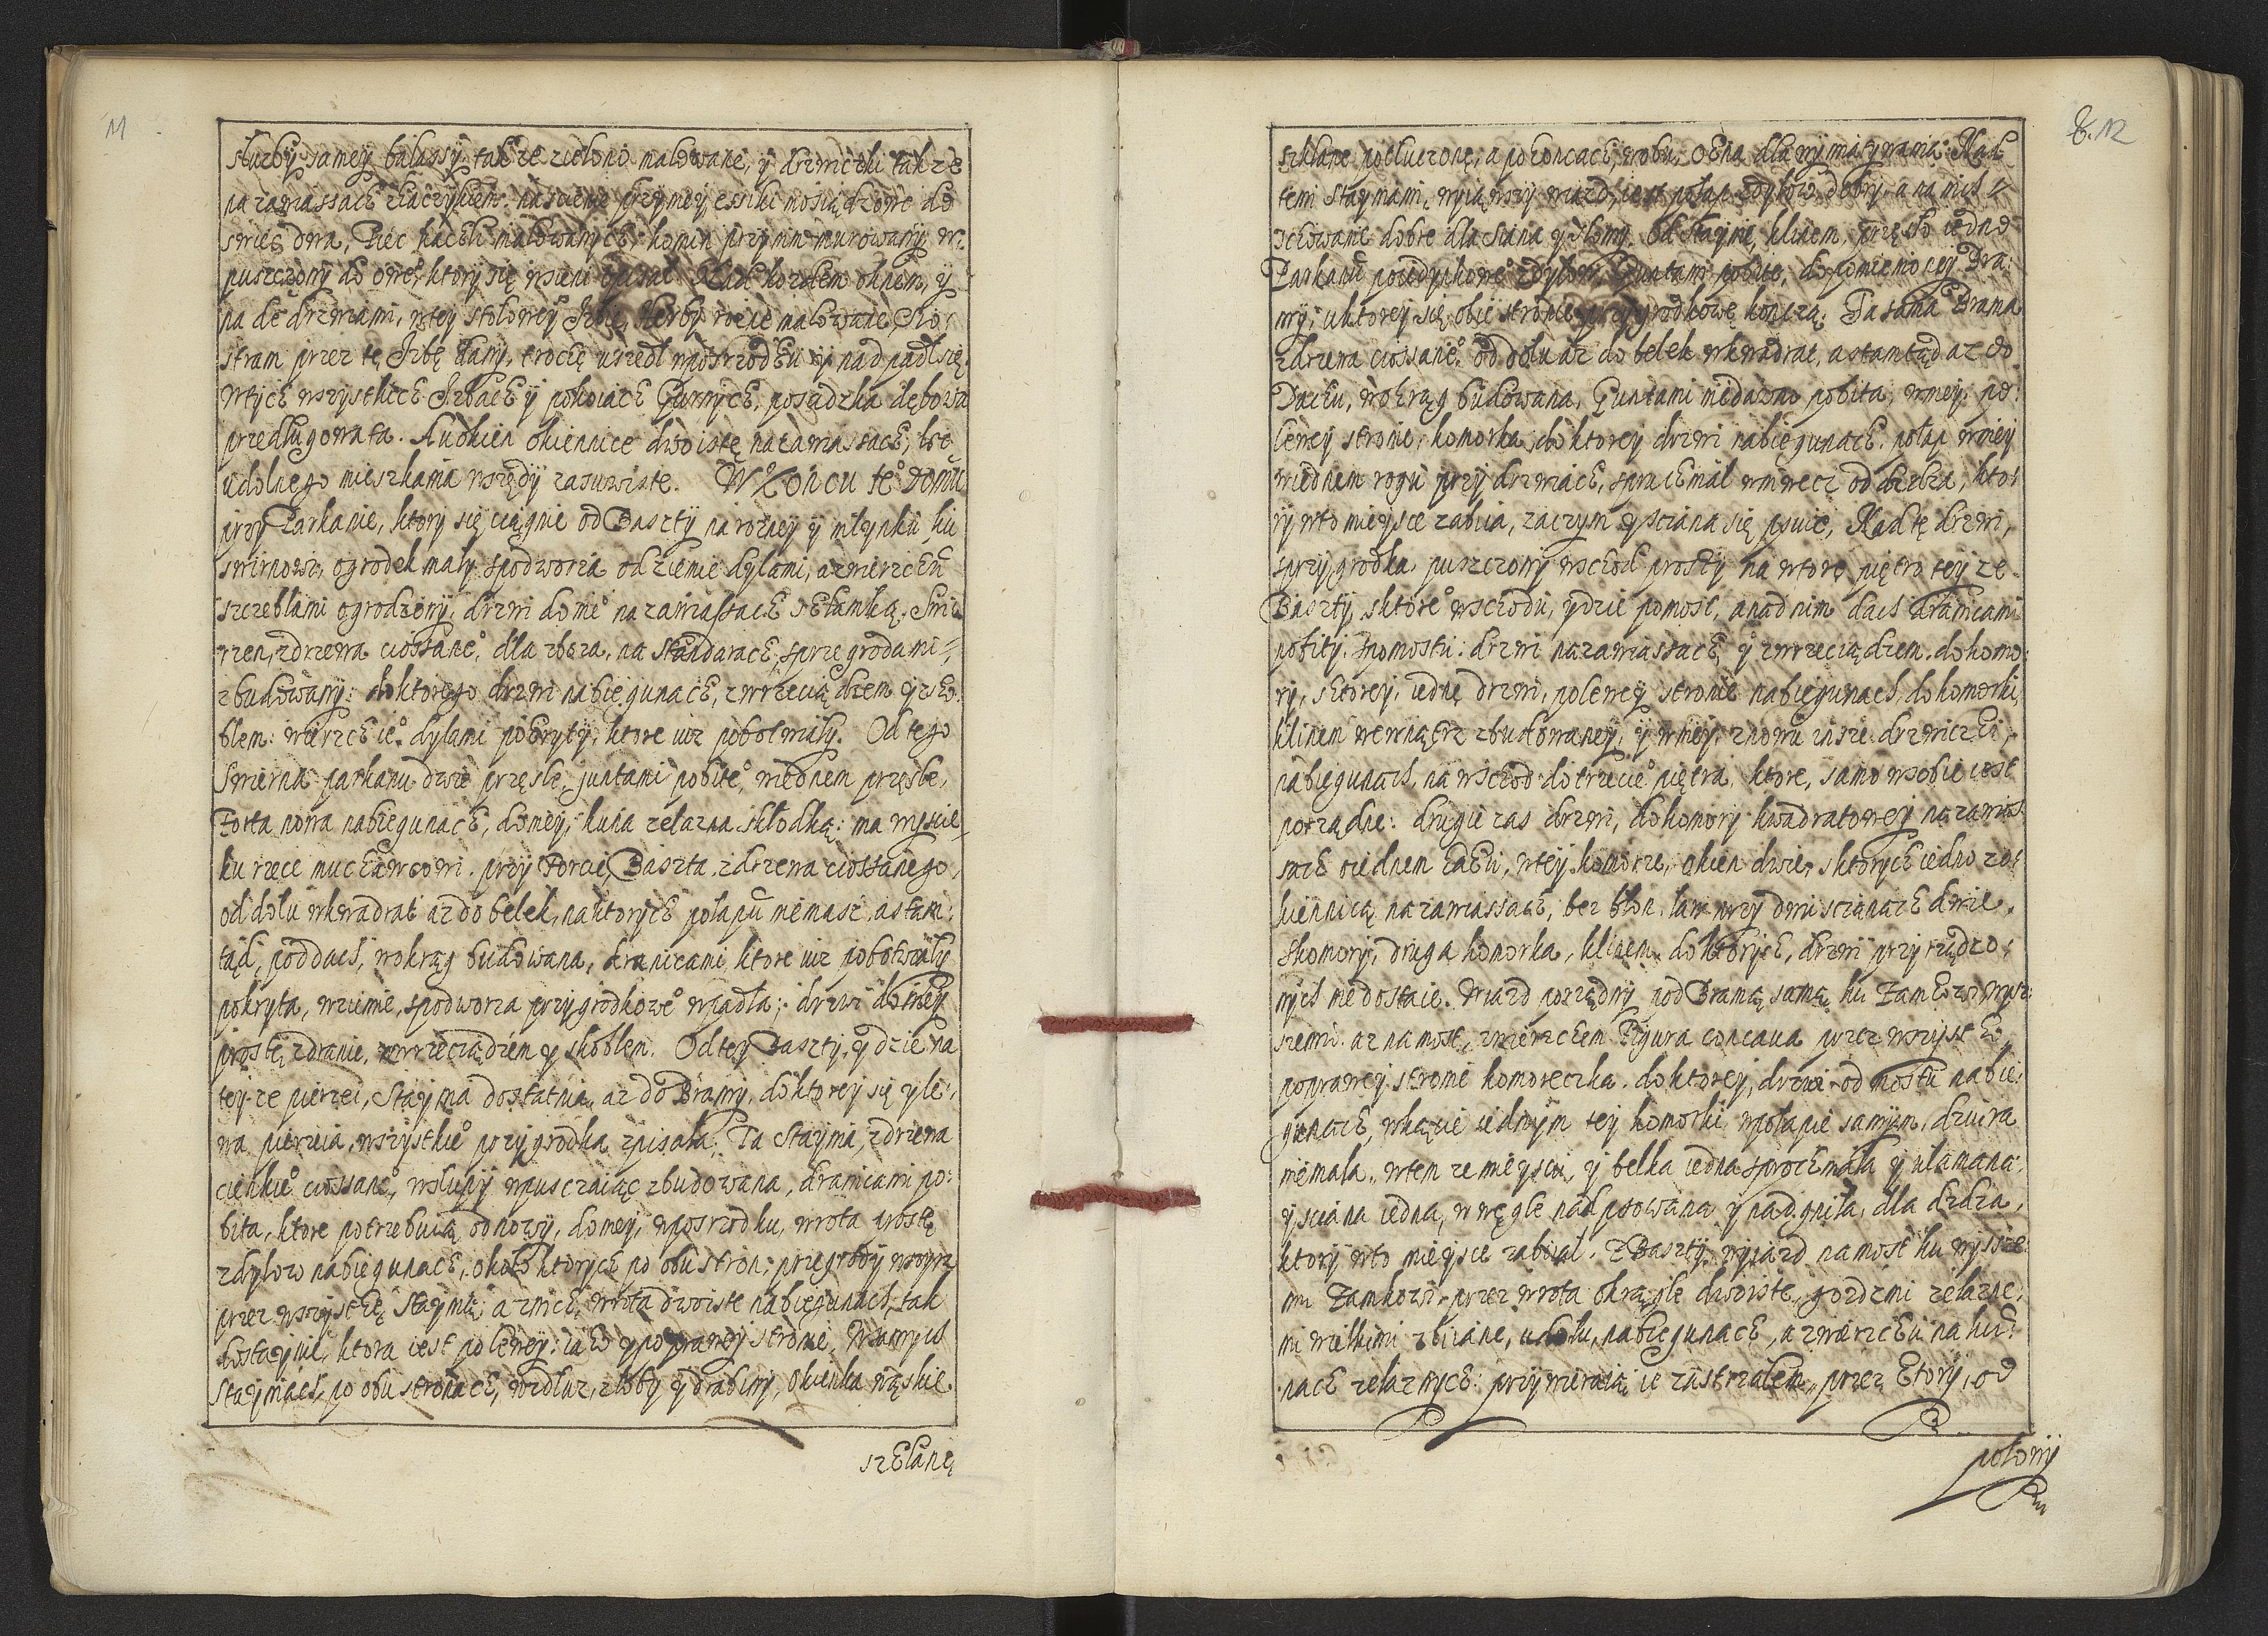 11
służby samey balassy, także zielono malowane, y drzwiczki także
na zawiassach z haczykiem. na scienie przy niey essiki mosiądzowe do
swiec dwa, Piec kachli malowanych, komin przy nim murowany, w:
puszczony do oneº, ktory się w sieni opisał. Nad kozdem oknem, y
nade drzwiami, w tey stołowey Izbie, Herby rożne malowane, Slo:
stram przez tę Izbę dany, trochę usiedl w posrzodku y nad padl się.
W tych wszystkich Izbach y pokoiach Gurnych, posadzka dębowa
przedługowata. A u okien okiennice dwoiste na zawiassach, bo
u dolnego mieszkania wszędy zasuwiste. W Końcu teº domu
przy Parkanie, ktory się ciągnie od Baszty narożney y młynku ku
swirnowi, ogrodek mały z podworza od ziemie dylami, a z wierzchu
szczeblami ogrodzony, drzwi do nieº na zawiassach z klamką. Swi:
rzen, z drzewa ciossaneº, dla zboza, na Standarach, z przegrodami
zbudowany: do ktorego drzwi na biegunach, z wrzeciądzem y sko:
blem: wierzch ieº dylami pokryty, ktore iuz pobotwiały. Od tego
Swirna parkanu dwie przęsle, guntami pobiteº, w iednem przęsle,
Forta nowa na biegunach, do niey, kuna zelazna z kłodką: ma wyscie
ku rzece muchawcowi. przy Forcie, Baszta z drzewa ciossanego,
od dołu w kwadrat az do belek, na ktorych połapu niemasz, a stam:
tąd, pod dach, w okrąg budowana, dranicami ktore iuz pobotwiały
pokryta, w ziemie, z podworza przygrodkoweº wpadła; drzwi do niey
proste z dranic, z wrzeciądzem y skoblem. Od tey Baszty, ydzie na
teyze pierzei, Staynia dostatnia, az do Bramy, do ktorey się y le:
wa pierzeia, wszystkieº przygrodka zpisała. Ta Staynia, z drzewa
cienkieº ciossaneº, w słupy wpuszczaiąc zbudowana, dranicami po:
bita, ktore potrzebuią odnowy, do niey, w posrzodku, wrota proste
z dylow na biegunach, około ktorych po obu stron, przegrody wsporz
przez wszystkę Staynią, a z nich, wrota dwoiste na biegunach, tak
do staynie, ktora iest po lewey: iako y po prawey stronie. W samych
Stayniach, po obu stronach, wzdłuz, złoby y drabiny, Okienka wąskie
szklane

8. 12
szklane potłuczone, a po koncach, w obu, okna dla wymiatywania. Nad
temi Stayniami, wyiąwszy wiazd, iest połap z dylow dobry a na nich
schowanie dobre dla siana y słomy. Od Stayni, klinem, przęsło iedno
Parkanu poiedynkoweº z dylow, Guntami pobite, do pomienioney Bra:
my, u ktorey się obie stronie przygrodkowe konczą. Ta sama Brama
z drzewa ciossaneº, od dołu az do belek w kwadrat, a stamtąd az do
Dachu, w okrąg budowana, Guntami niedawno pobita, w niey, po
lewey stronie, komorka, do ktorey drzwi na biegunach. połap w niey
w iednem rogu przy drzwiach, spruchniał w niwecz od dzdza, kto:
ry w to mieysce zabiia, zaczym y sciana się psuie, Nad te drzwi,
z przygrodka, puszczony wschod prosty na wtore piętro teyze
Baszty, z ktoreº wschodu, ydzie pomost, a nad nim dach dranicami
pobity. z pomostu: drzwi na zawiassach, y z wrzeciądzem, do komo:
ry, z ktorey, iedne drzwi, po lewey stronie na biegunach, do komorki,
klinem wewnątrz zbudowaney, y w niey, znowu insze drzwiczki,
na biegunach, na wschod do trzecieº piętra, ktore, samo w sobie iest
porządne: drugie zas drzwi, do komory kwadratowey na zawias:
sach o iednem haku, w tey komorze, okien dwie, z ktorych iedno z o:
kiennicą na zawiassach, bez błon. ław przy dwu scianach dwie.
z komory, druga komorka, klinem, do ktorych, drzwi przyrządzo:
nych nie dostaie. Wiazd porządny pod Bramą samą ku Zamkowi wysz:
szemu az na most, z wierzchem Figura concaua przez wszystko,
po prawey stronie komoreczka, do ktorey, drzwi od mostu na bie:
gunach, w kącie iednym tey komorki w połapie samym, dziura
niemała, w tem ze mieyscu, y belka iedna spruchniała y ułamana:
y sciana iedna, w węgle nad psowana y nad gniła, dla dzdza,
ktory w to mieysce zabiiał. Z Baszty, wyiazd na most ku wyssze:
mu Zamkowi, przez wrota okrągłe dwoiste, gozdzmi zelazne:
mi wielkimi zbiiane, u dołu, na biegunach, a z wierzchu na ku:
nach zelaznych: przywieraią ie zastrzałem, przez ktory, od
połowy